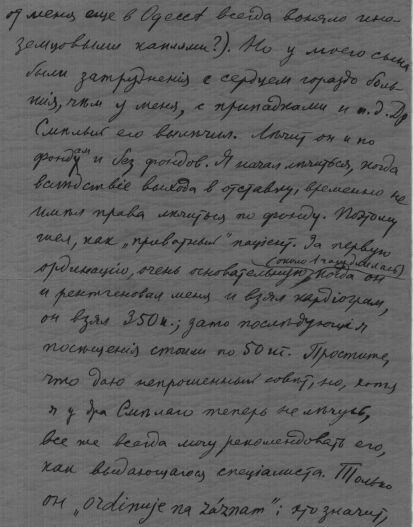 от меня еще в Одессѣ всегда воняло ино-
земцовыми каплями?). Но у моего сына
были затрудненія с сердцем гораздо боль-
шія, чѣм у меня, с припадками и т.д. Др
Смѣлый его вылѣчил. Лѣчит он и по
фондам и без фондов. Я начал лѣчиться, когда
вслѣдствіе выхода в отставку, временно не
имѣл права лѣчиться по фонду. Поэтому
шел, как „приватный" паціент. За первую
ординацію, очень основательную, (около 1 часа длилась) когда он
и рентгеновал меня и взял кардіограм,
он взял 350 к.; зато послѣдующія
посѣщенія стоили по 50 кч. Простите,
что даю непрошенный совѣт, но, хотя
я у дра Смѣлаго теперь не лѣчусь,
все же всегда могу рекомендовать его,
как выдающагося спеціалиста. Только
он „ordinuje na záznam"; это значит,